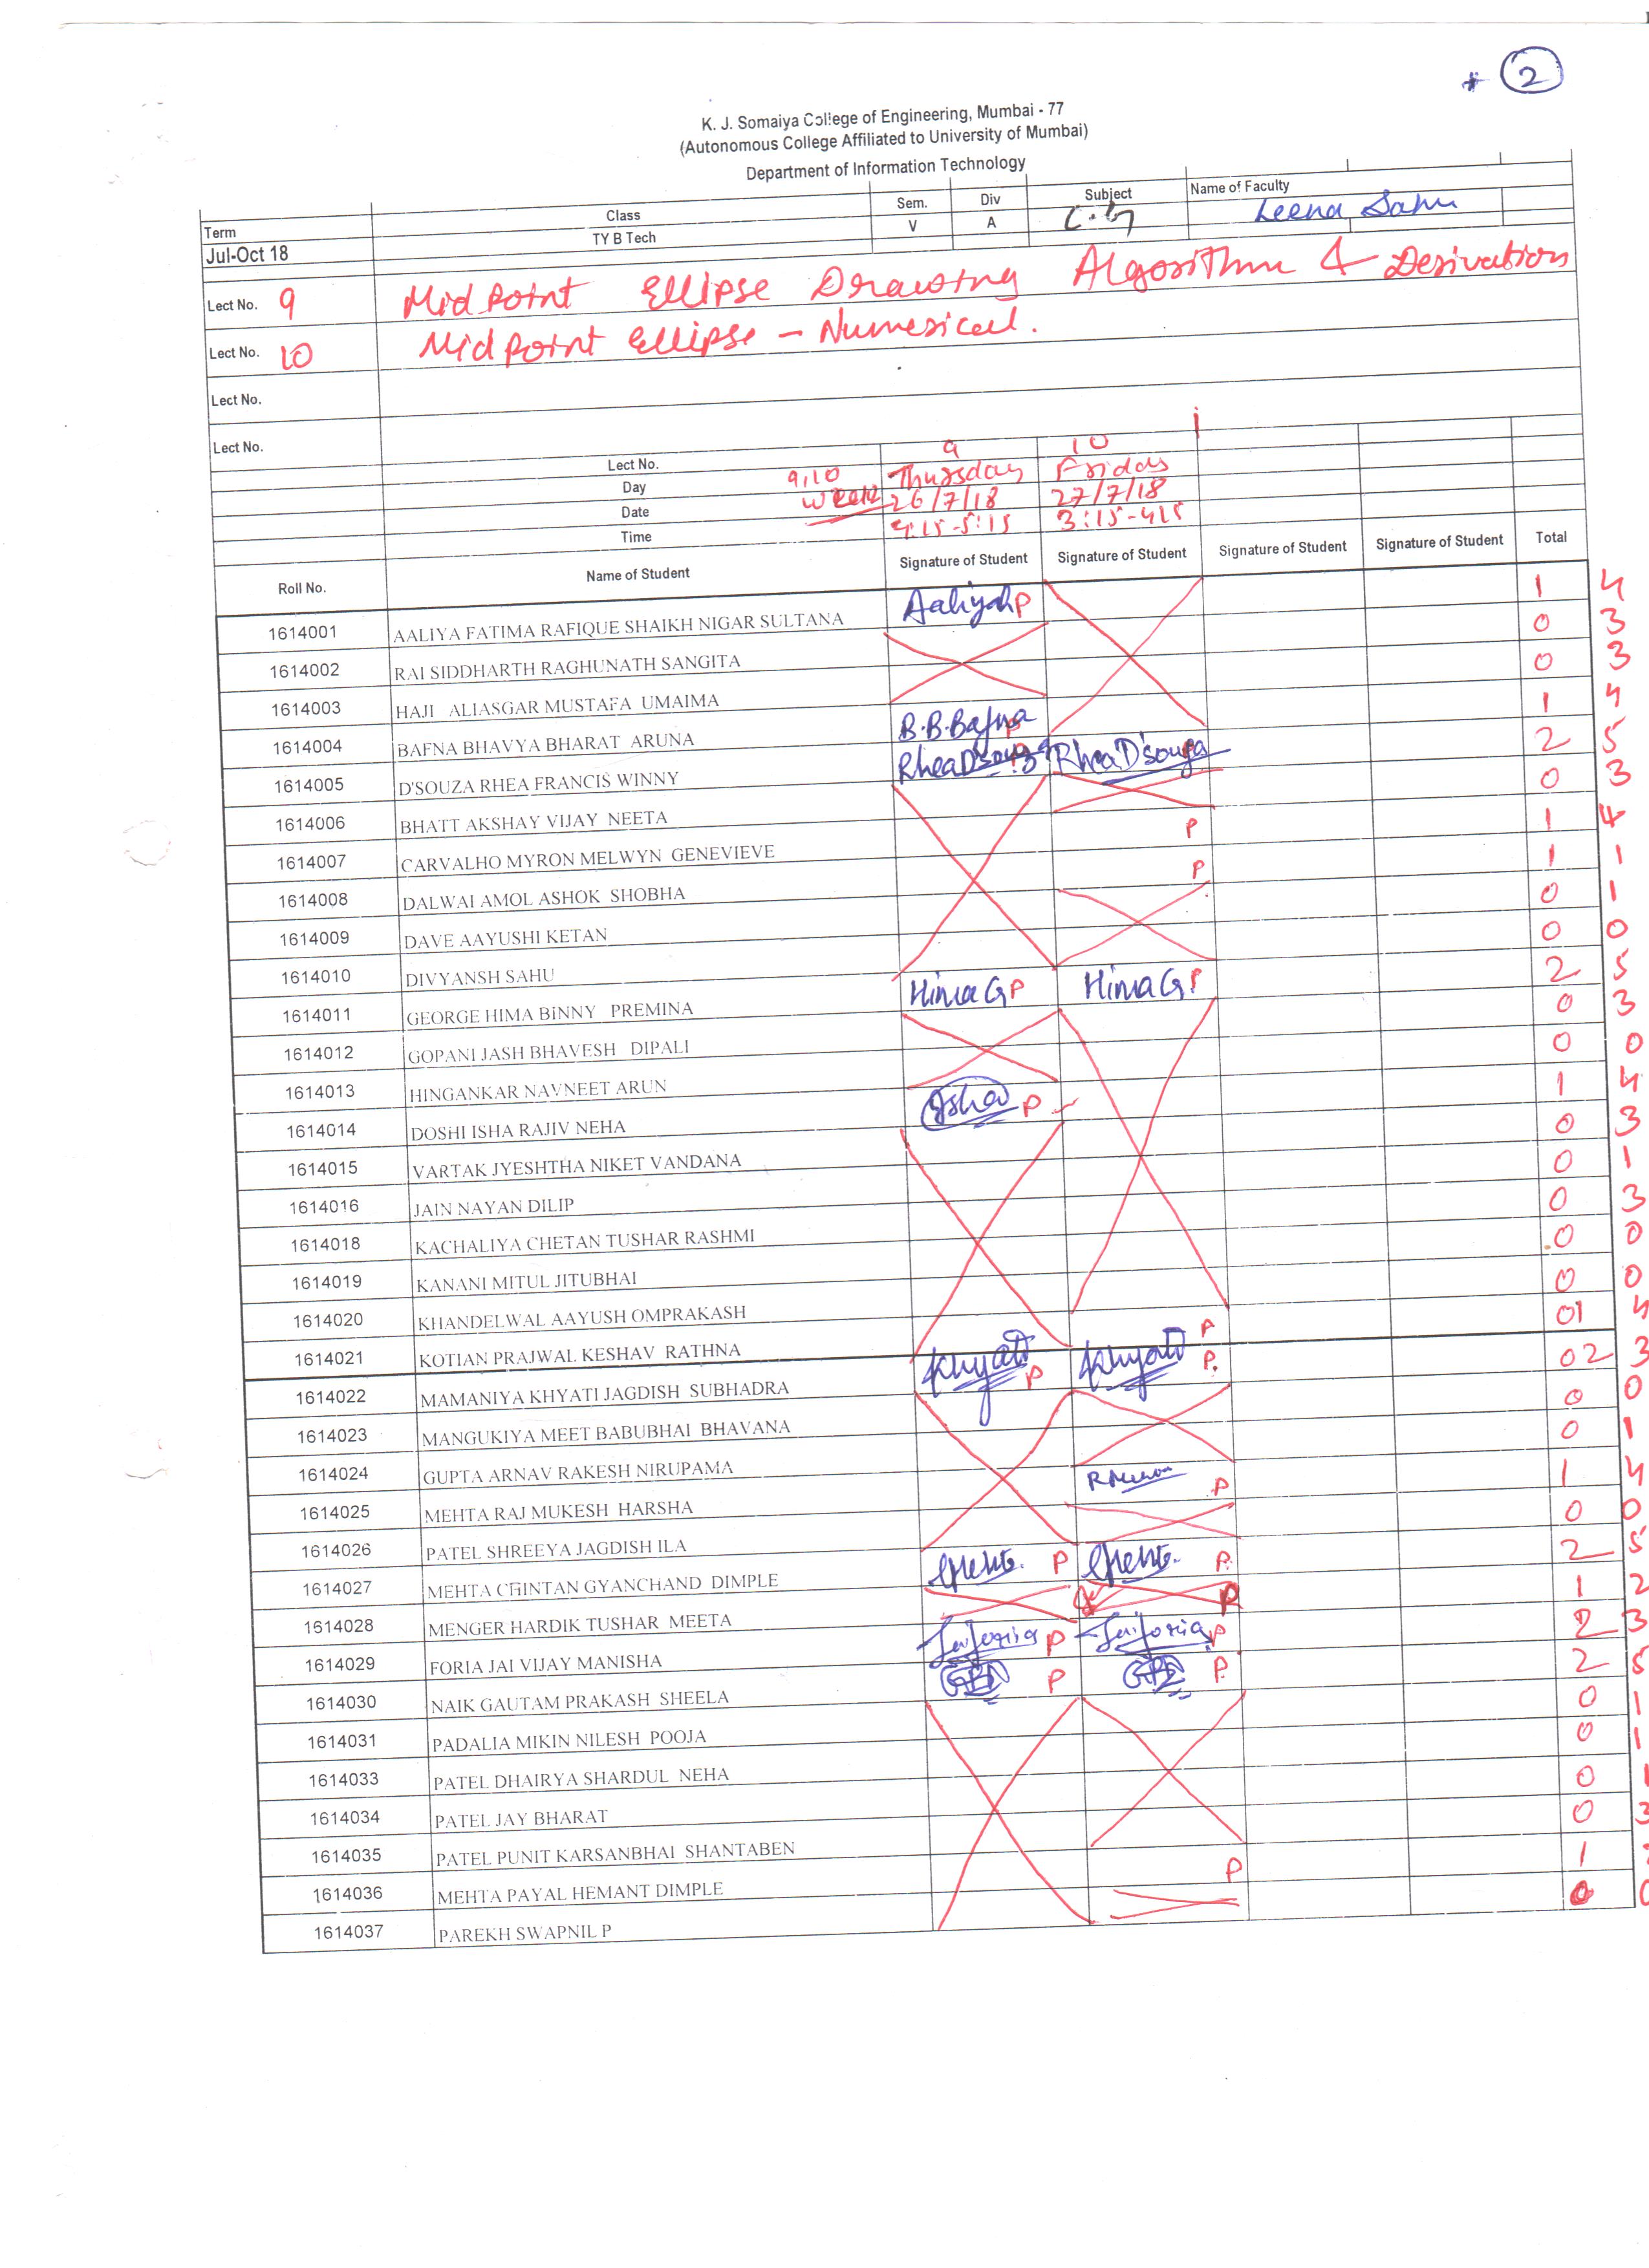 * 2
K. J. Somaiya College of Engineering, Mumbai - 77
(Autonomous College Affiliated to University of Mumbai)
Department of Information Technology
Term Class Sem. Div Subject Name of Faculty
Jul-Oct 18 TY B Tech V A C.G Leena Sahu
Lect No. 9 MidPoint Ellipse Drawing Algorithm & Derivation
Lect No. 10 MidPoint Ellipse - Numerical.
Lect No.
Lect No.
Lect No. 9 10
Day 9,10 Thursday Friday
Date week 26/7/18 27/7/18
Time 4:15-5:15 3:15-415
Roll No. Name of Student Signature of Student Signature of Student Signature of Student Signature of Student Total
1614001 AALIYA FATIMA RAFIQUE SHAIKH NIGAR SULTANA Aaliyah P 1 4
1614002 RAI SIDDHARTH RAGHUNATH SANGITA 0 3
1614003 HAJI ALIASGAR MUSTAFA UMAIMA 0 3
1614004 BAFNA BHAVYA BHARAT ARUNA B.B.Bafna P 1 4
1614005 D'SOUZA RHEA FRANCIS WINNY Rhea D'souza P Rhea D'souza P 2 5
1614006 BHATT AKSHAY VIJAY NEETA 0 3
1614007 CARVALHO MYRON MELWYN GENEVIEVE P 1 4
1614008 DALWAI AMOL ASHOK SHOBHA P 1 1
1614009 DAVE AAYUSHI KETAN 0 1
1614010 DIVYANSH SAHU 0 0
1614011 GEORGE HIMA BINNY PREMINA Hima G P Hima G P 2 5
1614012 GOPANI JASH BHAVESH DIPALI 0 3
1614013 HINGANKAR NAVNEET ARUN 0 0
1614014 DOSHI ISHA RAJIV NEHA Isha P 1 4
1614015 VARTAK JYESHTHA NIKET VANDANA 0 3
1614016 JAIN NAYAN DILIP 0 1
1614018 KACHALIYA CHETAN TUSHAR RASHMI 0 3
1614019 KANANI MITUL JITUBHAI 0 0
1614020 KHANDELWAL AAYUSH OMPRAKASH 0 0
1614021 KOTIAN PRAJWAL KESHAV RATHNA P 01 4
1614022 MAMANIYA KHYATI JAGDISH SUBHADRA Khyati P Khyati P. 02 3
1614023 MANGUKIYA MEET BABUBHAI BHAVANA 0 0
1614024 GUPTA ARNAV RAKESH NIRUPAMA 0 1
1614025 MEHTA RAJ MUKESH HARSHA P 1 4
1614026 PATEL SHREEYA JAGDISH ILA 0 0
1614027 MEHTA CHINTAN GYANCHAND DIMPLE P P. 2 5
1614028 MENGER HARDIK TUSHAR MEETA P 1 2
1614029 FORIA JAI VIJAY MANISHA Jai foria P Jai foria P 2 3
1614030 NAIK GAUTAM PRAKASH SHEELA P P. 2 5
1614031 PADALIA MIKIN NILESH POOJA 0 1
1614033 PATEL DHAIRYA SHARDUL NEHA 0 1
1614034 PATEL JAY BHARAT 0 1
1614035 PATEL PUNIT KARSANBHAI SHANTABEN 0 3
1614036 MEHTA PAYAL HEMANT DIMPLE P 1
1614037 PAREKH SWAPNIL P 0 0